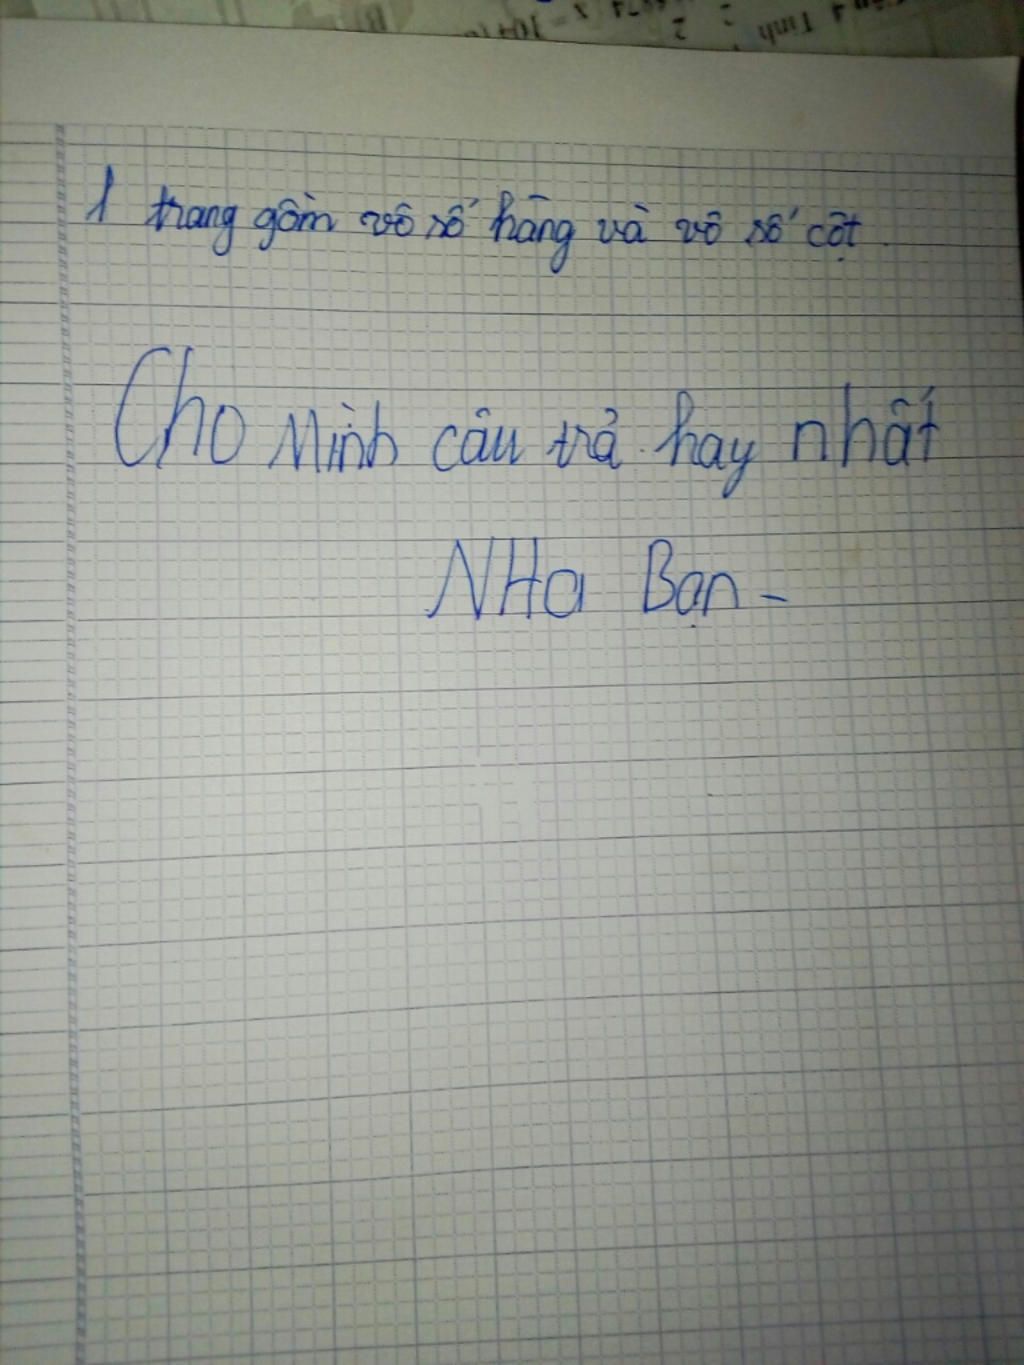 1 trang gồm vô số hàng và vô số cột
Cho Mình câu trả hay nhất
NHa Bạn -